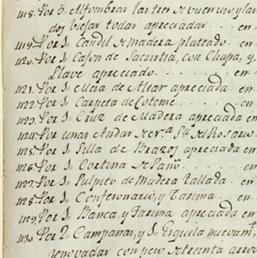 1118. Por 3. Alfombras las tres de
dos viejas todas apreciadas .. en
1119. Por 1. Candil de madera plateado .. en
1120. Por 1. Cajon de Sacristia, con Chapa, y
Llave apreciado .. en
1121. Por 1. Mesa de Altar apreciada .. en
1122. Por 1. Carpeta de Cotense .. en
1123. Por 1. Cruz de Madera apreciada .. en
1124. Por unas Andas de
1125. Por 1. Silla de Brazos apreciada en
1126. Por 1. Cortina de Paño .. en
1127. Por 1. Pulpito de Madera tallada .. en
1128. Por 1. Confesonario, y Tarima .. en
1129. Por 1. Banca, y Tarima apreciada en
1130. Por 2. Campanas, y 1. Esquila
renovadas con peso de treinta